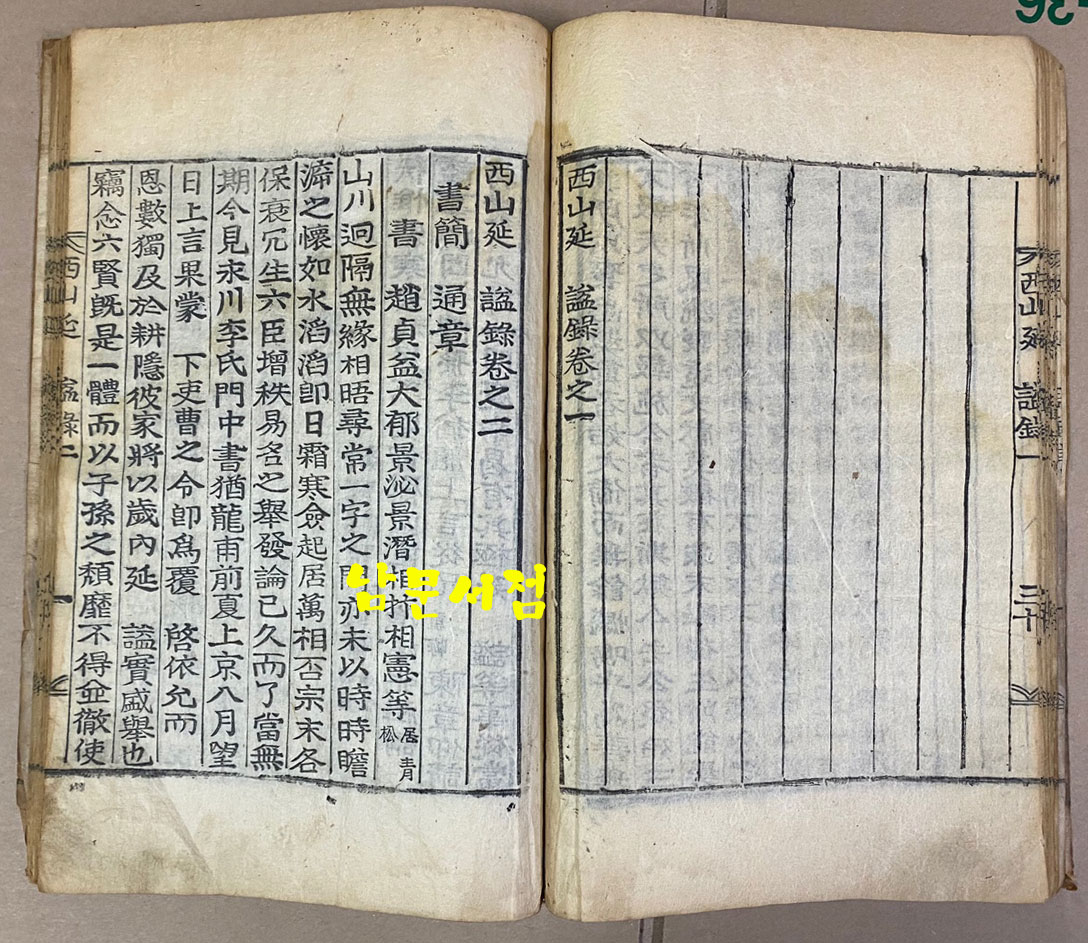 西山延 諡錄卷之一
西山延 諡錄一
三十
西山延 諡錄卷之二
書簡 通章
書 趙貞益大郁景泌景潛相抃相憲等 居青松
山川迥隔無緣相晤尋常一字之問亦未以時時瞻
溯之懷如水滔滔卽日霜寒僉起居萬相否宗末各
保衰冗生六臣增秩易名之擧發論已久而了當無
期今見永川李氏門中書猶龍甫前夏上京八月望
日上言果蒙 下吏曹之令卽爲覆 啓依允而
恩數獨及於耕隱彼家將以歲內延 諡實盛擧也
竊念六賢旣是一體而以子孫之頹靡不得並徹使
西山延 諡錄二
一
남문서점